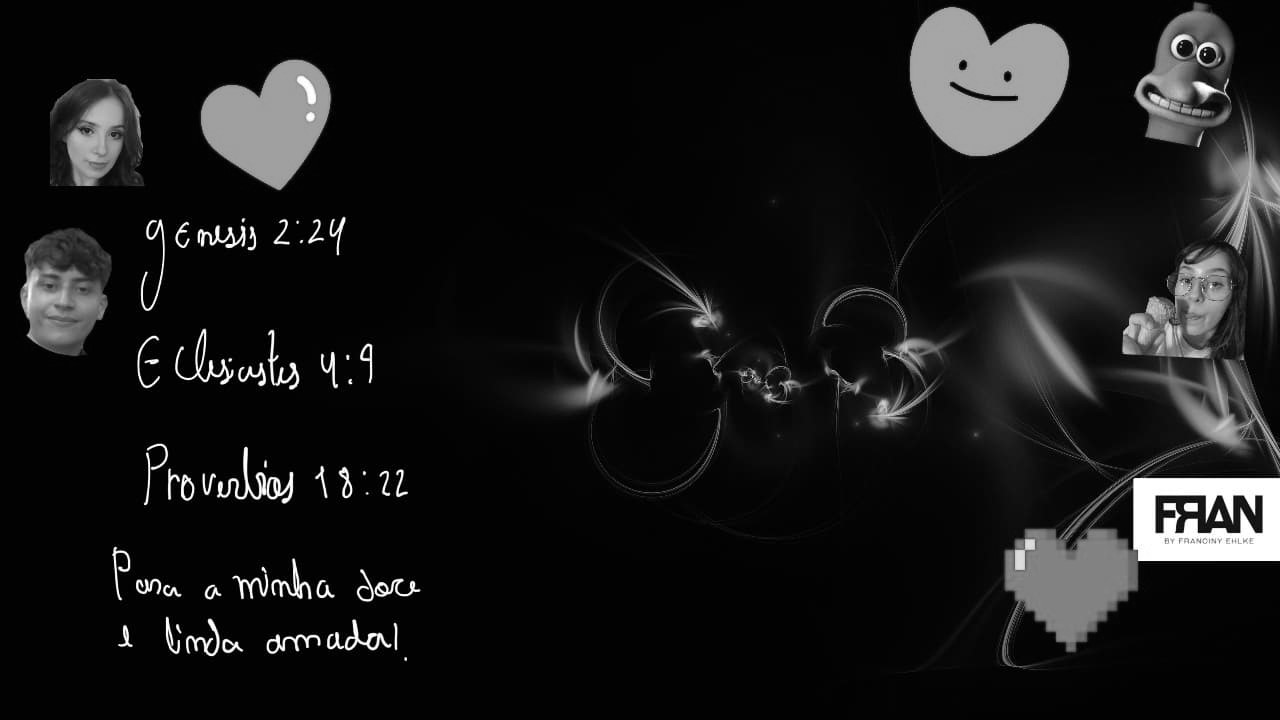 genesis 2:24
Eclesiastes 4:9
Proverbios 18:22
Para a minha doce
e linda amada!
FRAN
BY FRANCINY EHLKE